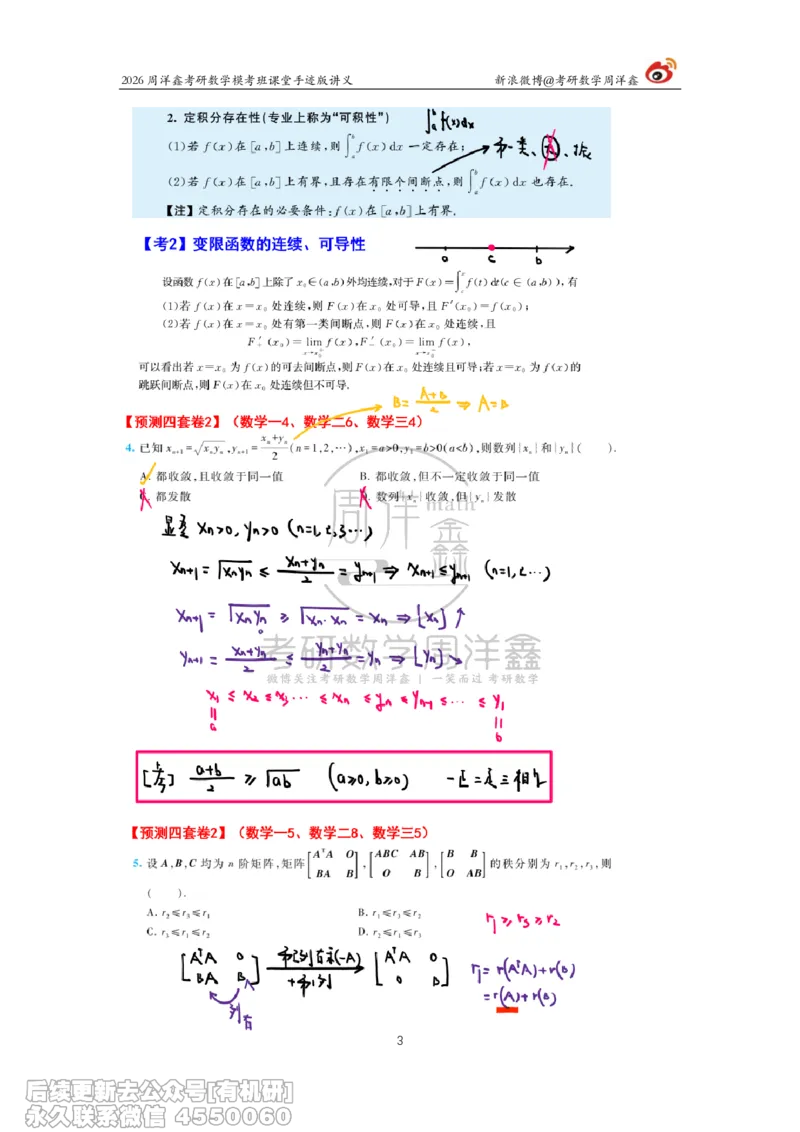 2026周洋鑫考研数学模考班课堂手迹版讲义 新浪微博@考研数学周洋鑫
2. 定积分存在性(专业上称为“可积性”) ∫ₐᵇf(x)dx
(1)若 f(x)在[a,b]上连续,则∫ₐᵇf(x)dx 一定存在;
(2)若 f(x)在[a,b]上有界,且存在有限个间断点,则∫ₐᵇf(x)dx 也存在.
【注】定积分存在的必要条件:f(x)在[a,b]上有界.
【考2】变限函数的连续、可导性
a c b
设函数 f(x)在[a,b]上除了 x₀∈(a,b)外均连续,对于 F(x)=∫f(t)dt(c∈(a,b)),有
(1)若 f(x)在 x=x₀ 处连续,则 F(x)在 x₀ 处可导,且 F′(x₀)=f(x₀);
(2)若 f(x)在 x=x₀ 处有第一类间断点,则 F(x)在 x₀ 处连续,且
F′₊(x₀)=lim f(x),F′₋(x₀)=lim f(x),
可以看出若 x=x₀ 为 f(x)的可去间断点,则 F(x)在 x₀ 处连续且可导;若 x=x₀ 为 f(x)的
跳跃间断点,则 F(x)在 x₀ 处连续但不可导.
B=(A+B)/2 ⇒ A=B
【预测四套卷2】(数学一4、数学二6、数学三4)
4. 已知 xₙ₊₁=√(xₙyₙ),yₙ₊₁=(xₙ+yₙ)/2(n=1,2,…),x₁=a>0,y₁=b>0(a<b),则数列{xₙ}和{yₙ}( ).
A. 都收敛,且收敛于同一值 B. 都收敛,但不一定收敛于同一值
C. 都发散 D. 数列{xₙ}收敛,但{yₙ}发散
显然 xₙ>0, yₙ>0 (n=1,2,3…)
xₙ₊₁=√(xₙyₙ) ≤ (xₙ+yₙ)/2 = yₙ₊₁ ⇒ xₙ₊₁≤yₙ₊₁ (n=1,2…)
xₙ₊₁ = √(xₙyₙ) ≥ √(xₙ·xₙ) = xₙ ⇒ {xₙ}↑
yₙ₊₁ = (xₙ+yₙ)/2 ≤ (yₙ+yₙ)/2 = yₙ ⇒ {yₙ}↘
周洋鑫 math
考研数学周洋鑫
微博关注考研数学周洋鑫 | 一笑而过 考研数学
x₁ ≤ x₂ ≤ x₃ … ≤ xₙ ≤ yₙ ≤ yₙ₋₁ ≤ … ≤ y₁
= a = b
(a+b)/2 ≥ √(ab) (a≥0, b≥0) 一正二定三相等
【预测四套卷2】(数学一5、数学二8、数学三5)
5. 设 A,B,C 均为 n 阶矩阵,矩阵[AᵀA O; BA B],[ABC AB; O B],[B B; O AB]的秩分别为 r₁,r₂,r₃,则
( ).
A. r₂≤r₃≤r₁ B. r₁≤r₃≤r₂
C. r₃≤r₁≤r₂ D. r₂≤r₁≤r₃
r₁≥r₃≥r₂
[AᵀA O; BA B] → [AᵀA O; O B] r₁=r(AᵀA)+r(B)
=r(A)+r(B)
列右
3
后续更新去公众号[有机研]
永久联系微信 4550060